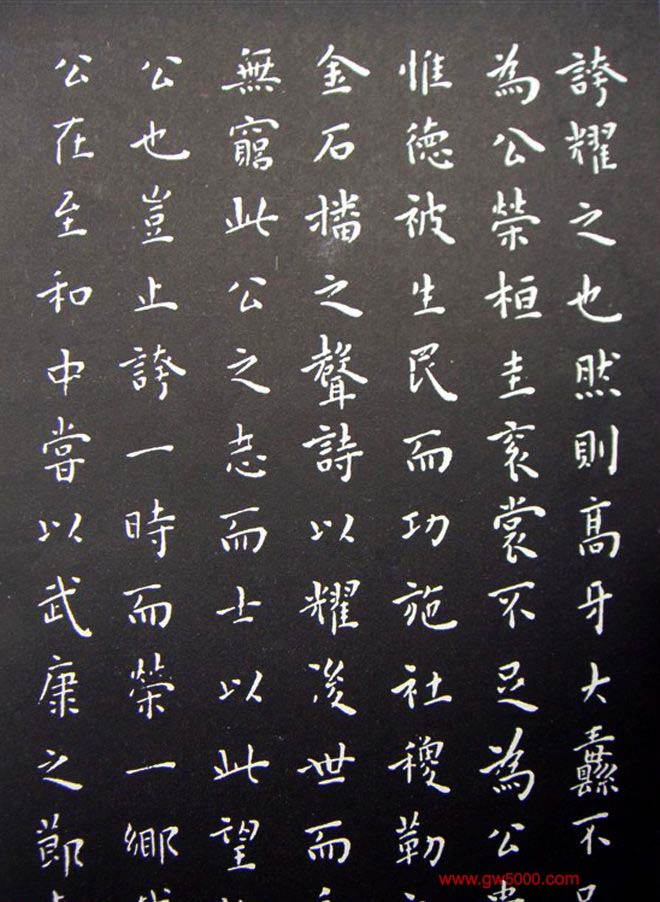 誇耀之也然則高牙大纛不足
為公榮桓圭衮裳不足為公貴
惟德被生民而功施社稷勒
金石播之聲詩以耀後世而
無窮此公之志而士以此望
公也豈止誇一時而榮一鄉
公在至和中嘗以武康之節
www.gw5000.com